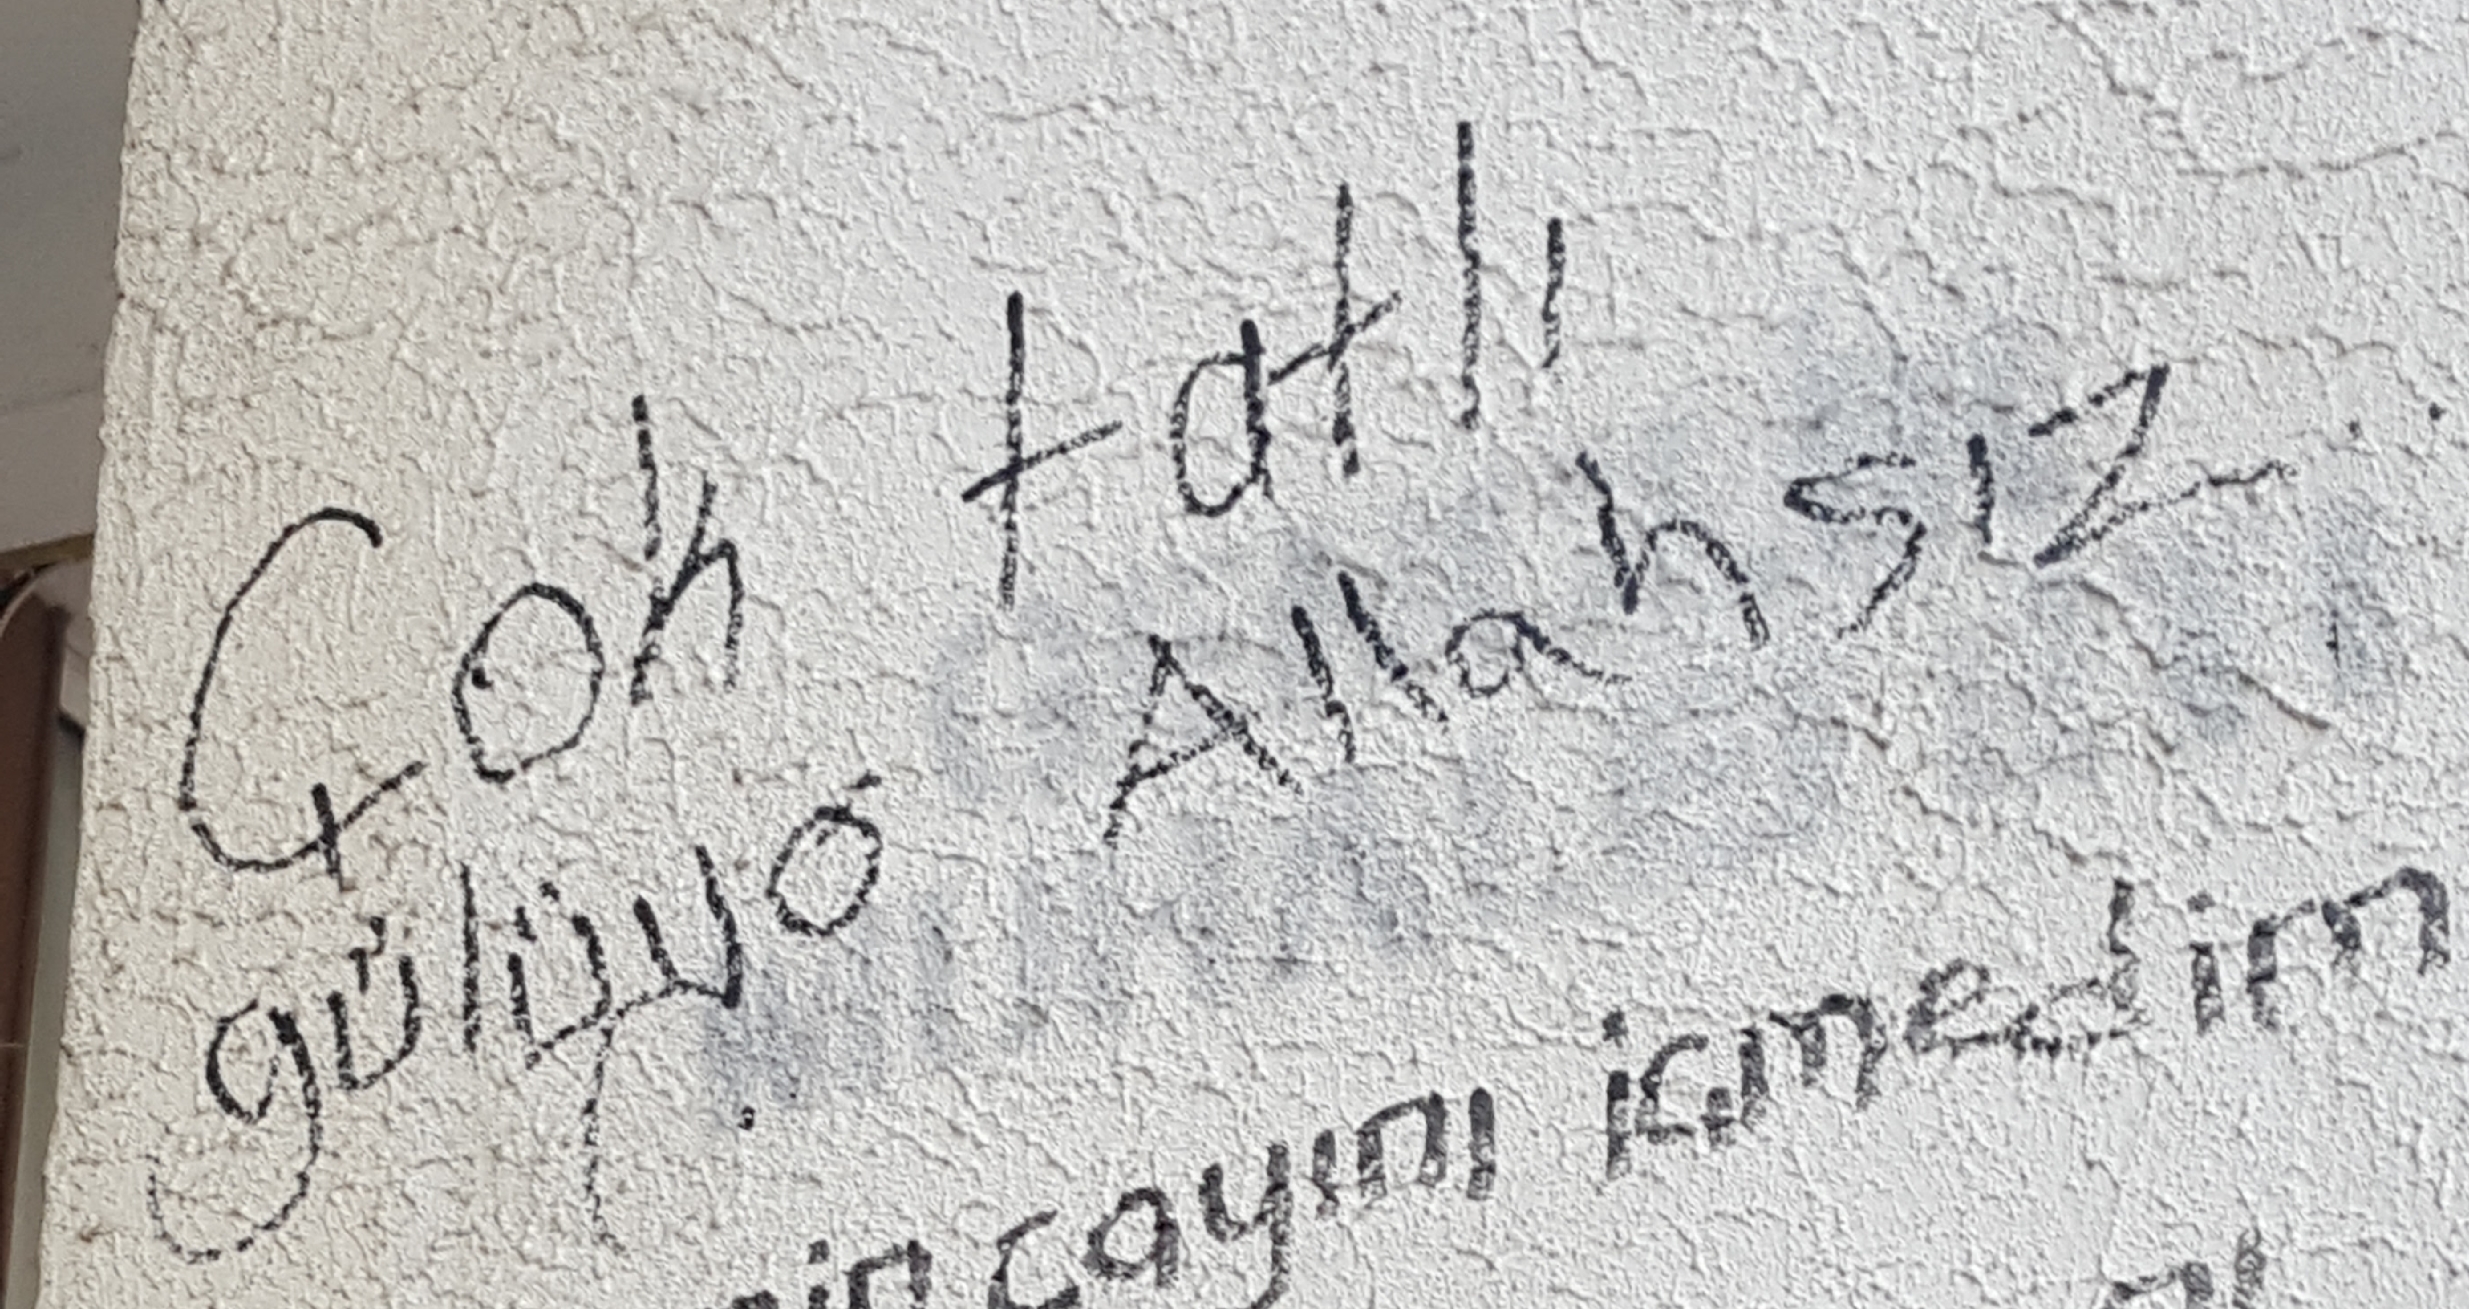 Çok tatlı
gülüyo Allahsız...
çayını içmedim